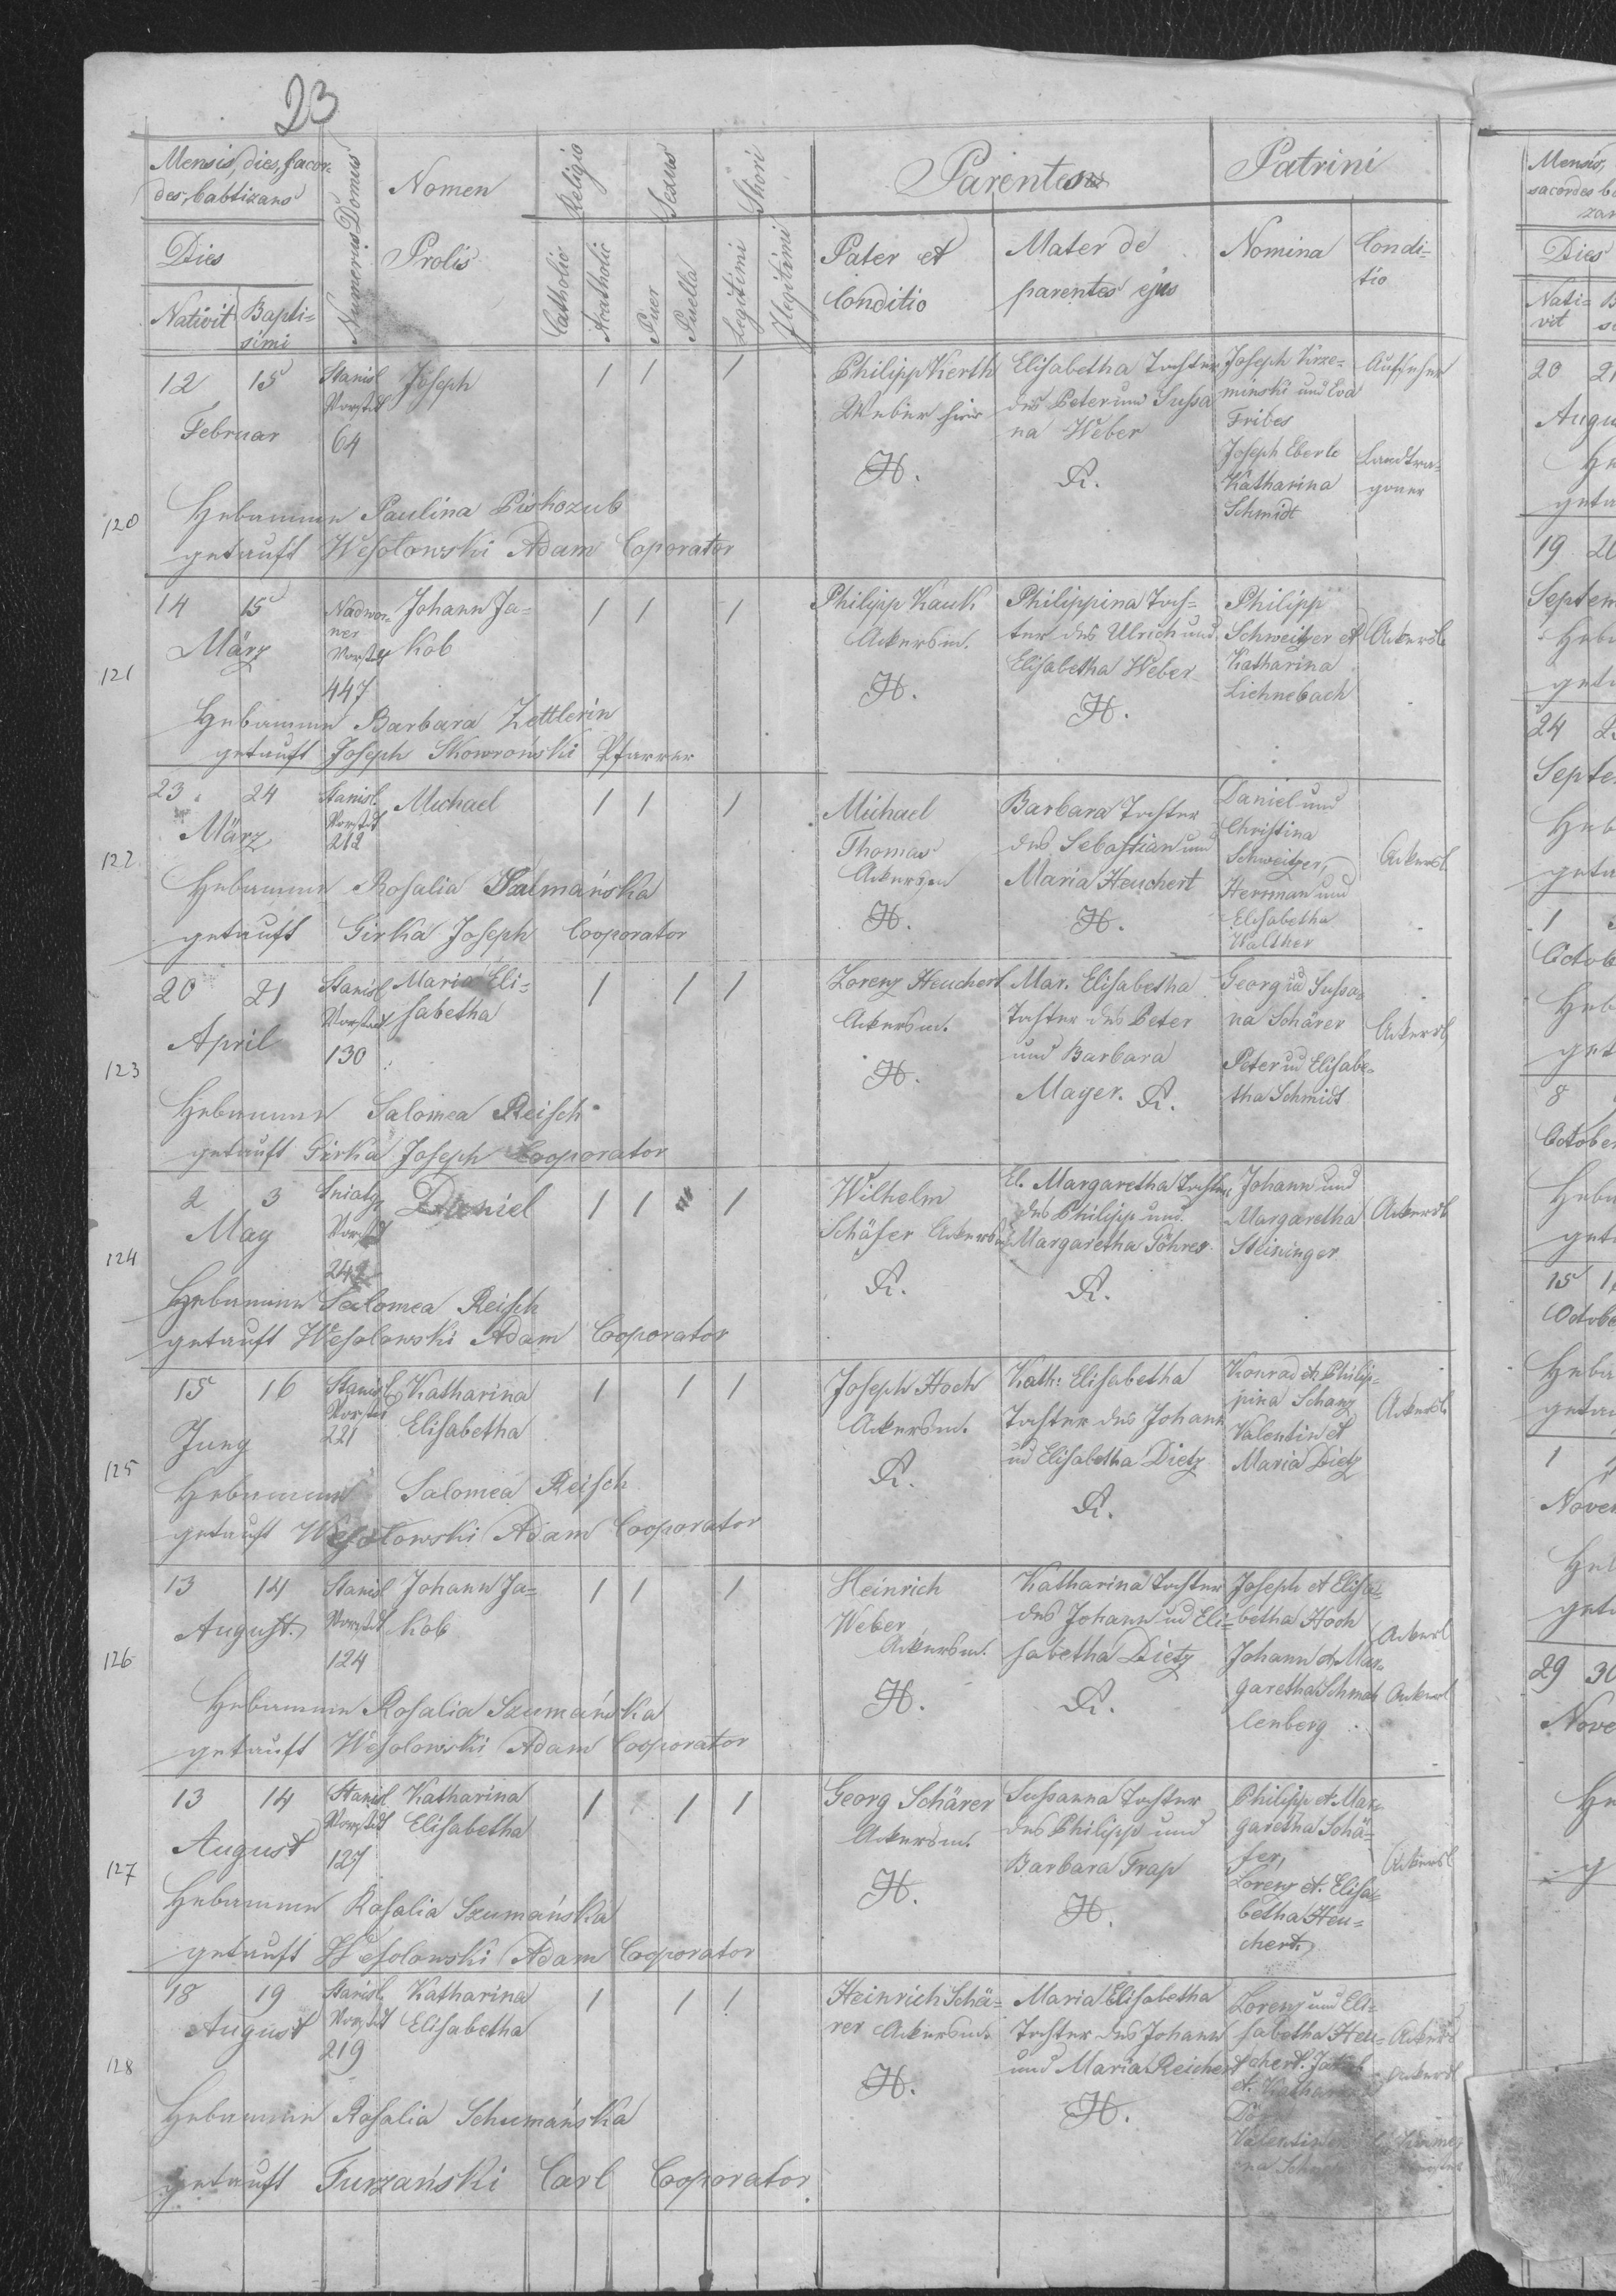 23
Mensis, dies, sacor-
des, babtizans
Numerus Domus
Nomen
Religio
Sexus
Thori
Parentes
Patrini
Dies
Prolis
Catholic
Acatholic
Puer
Puella
Legitimi
Illegitimi
Pater et
Conditio
Mater de
parentes ejus
Nomina
Condi-
tio
Nativit
Bapti-
simi
120
12 15
Februar
Stanisl
Vorstdt
64
Joseph
1 1 1
Philipp Kerth
Weber hier
H.
Elisabetha Tochter
des Peter und Sussa
na Weber
R.
Joseph Krze-
minski und Eva
Fribes
Joseph Eberle
Katharina
Schmidt
Aufseher
Landtra-
goner
Hebamme Paulina Piskozub
getauft Wesolowski Adam Coporator
121
14 15
März
Nadwor-
ner
Vorstdt
447
Johann Ja-
kob
1 1 1
Philipp Kauk
Ackersm.
H.
Philippina Toch-
ter des Ulrich und
Elisabetha Weber
H.
Philipp
Schweitzer et
Katharina
Lichnebach
Ackersl
Hebamme Barbara Zettlerin
getauft Joseph Skowroński Pfarrer
122
23 24
März
Stanisl.
Vorstdt
212
Michael
1 1 1
Michael
Thomas
Ackersm
H.
Barbara Tochter
des Sebastian und
Maria Heuchert
H.
Daniel und
Christina
Schweitzer,
Herrman und
Elisabetha
Walther
Ackersl
Hebamme Rosalia
getauft Girka Joseph Cooporator
123
20 21
April
Stanisl
Vorstdt
130
Maria Eli-
sabetha
1 1 1
Lorenz Heuchert
Ackersm.
H.
Mar. Elisabetha
Tochter des Peter
und Barbara
Mayer. R.
Georg ud Sussa-
na Schärer
Peter ud Elisabe-
tha Schmidt
Ackersl
Hebamme Salomea Reisch
getauft Girka Joseph Cooporator
124
2 3
May
Sniatyn
Vorstdt
242
Daniel
1 1 1
Wilhelm
Schäfer Ackersm
R.
El. Margaretha Tochter
des Philipp und
Margaretha Föhres
R.
Johann und
Margaretha
Steininger
Ackersl
Hebamme Salomea Reisch
getauft Wesolowski Adam Cooporator
125
15 16
Juny
Stanisl
Vorstdt
221
Katharina
Elisabetha
1 1 1
Joseph Hoch
Ackersm.
R.
Kath: Elisabetha
Tochter des Johann
ud Elisabetha Dietz
R.
Konrad et Philip-
pina Schanz
Valentin et
Maria Dietz
Ackersl.
Hebamme Salomea Reisch
getauft Wesolowski Adam Cooporator
126
13 14
August.
Stanisl
Vorstdt
124
Johann Ja-
kob
1 1 1
Heinrich
Weber
Ackersm.
H.
Katharina Tochter
des Johann ud Eli-
sabetha Dietz
R.
Joseph et Elisa-
betha Hoch
Johann et Mar-
garetha Schmah
lenberg
Ackerl
Ackerl
Hebamme Rosalia Szumańska
getauft Wesolowski Adam Cooporator
127
13 14
August
Stanisl
Vorstdt
127
Katharina
Elisabetha
1 1 1
Georg Schärer
Ackersm.
H.
Sussanna Tochter
des Philipp und
Barbara Trap
H.
Philipp et Mar-
garetha Schä-
fer,
Lorenz et. Elisa-
betha Heu-
chert.
Ackersl
Hebamme Rosalia Szumańska
getauft Wesolowski Adam Cooporator
128
18 19
August
Stanisl.
Vorstdt
219
Katharina
Elisabetha
1 1 1
Heinrich Schä-
rer Ackersm.
H.
Maria Elisabetha
Tochter des Johann
und Maria Reichert
H.
Lorenz und Eli-
sabetha Heu-
chert. Jakob
et. Katharina
Ackersl
Ackersl
Hebamme Rosalia Schumańska
getauft Furzański Carl Cooporator
Mensis,
sacerdes b
zan
Dies
Nati-
vit
20 21
Augu
19 20
Septem
24
Septe
1
Octob
8
October
15
Octobe
1
Nove
29 30
Nove